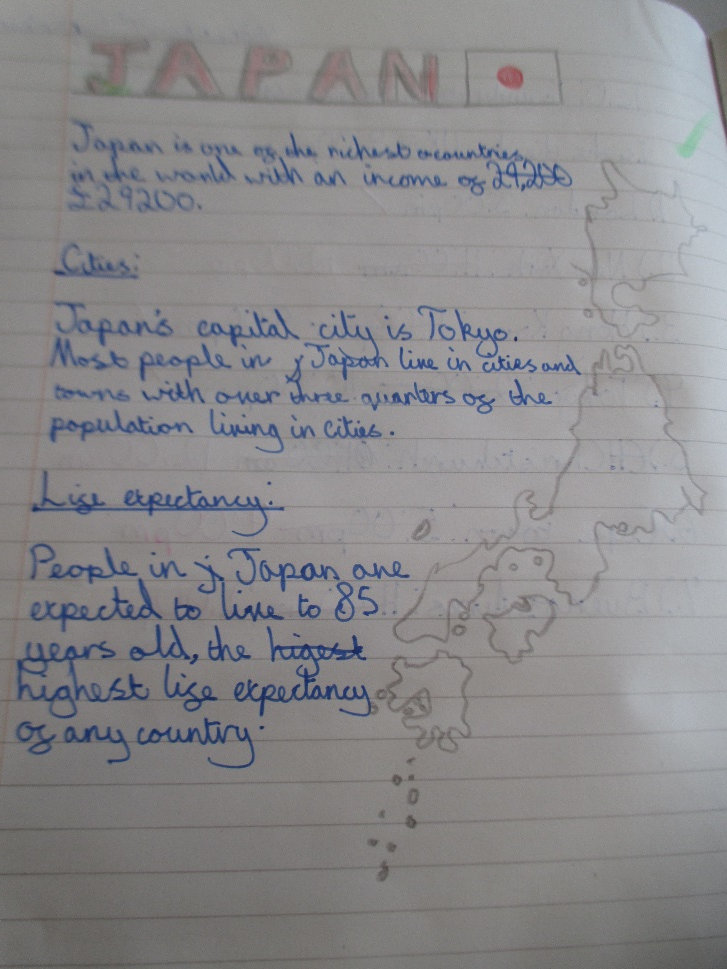 JAPAN
Japan is one of the richest countries
in the world with an income of 29,200
£29200.
Cities:
Japan's capital city is Tokyo.
Most people in j Japan live in cities and
towns with over three quarters of the
population living in cities.
Life expectancy:
People in j Japan are
expected to live to 85
years old, the higest
highest life expectancy
of any country.